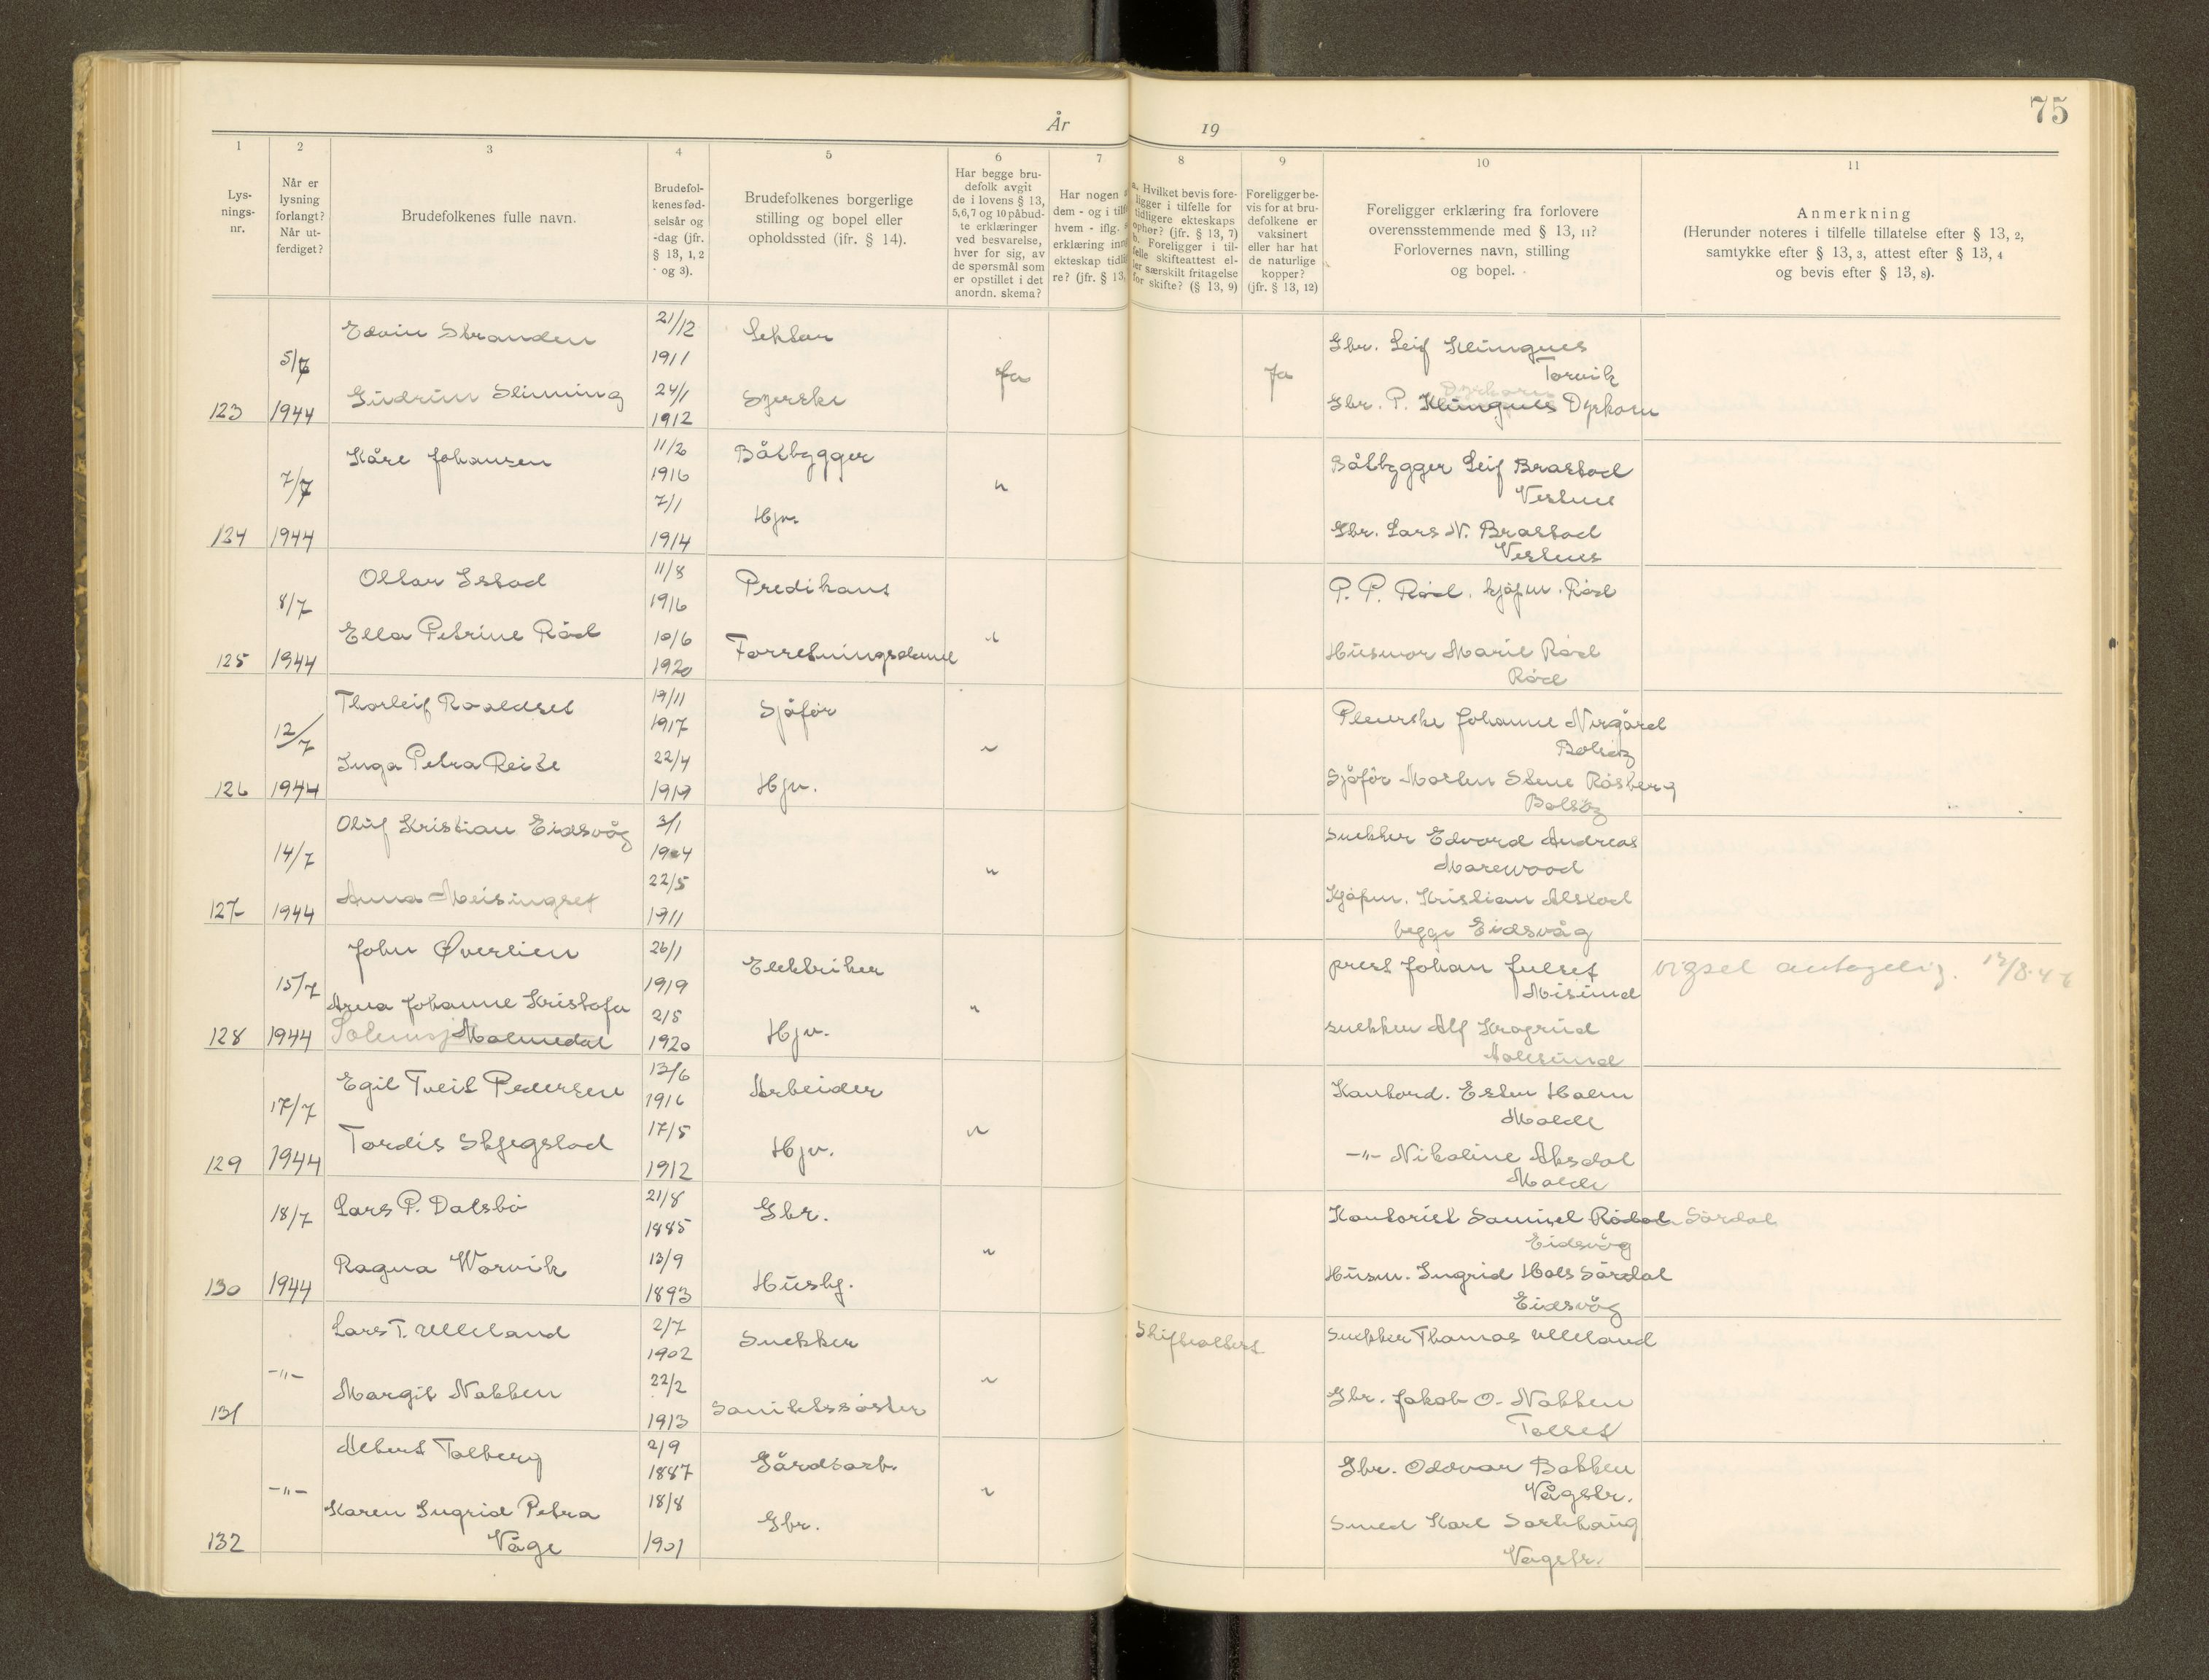 75
År 19
1 2 3 4 5 6 7 8 9 10 11
Lys-
nings-
nr.
Når er
lysning
forlangt?
Når ut-
ferdiget?
Brudefolkenes fulle navn.
Brudefol-
kenes fød-
selsår og
-dag (jfr.
§ 13, 1, 2
og 3).
Brudefolkenes borgerlige
stilling og bopel eller
opholdssted (jfr. § 14).
Har begge bru-
defolk avgit
de i lovens § 13,
5,6,7 og 10 påbud-
te erklæringer
ved besvarelse,
hver for sig, av
de spørsmål som
er opstillet i det
anordn. skema?
Har nogen
dem - og i tilf
hvem - iflg.
erklæring inn
ekteskap tidli
re? (jfr. § 13,
a. Hvilket bevis fore-
ligger i tilfelle for
tidligere ekteskaps
ophør? (jfr. § 13, 7)
b. Foreligger i til-
felle skifteattest el-
ler særskilt fritagelse
for skifte? (§ 13, 9)
Foreligger be-
vis for at bru-
defolkene er
vaksinert
eller har hat
de naturlige
kopper?
(jfr. § 13, 12)
Foreligger erklæring fra forlovere
overensstemmende med § 13, 11?
Forlovernes navn, stilling
og bopel.
Anmerkning
(Herunder noteres i tilfelle tillatelse efter § 13, 2,
samtykke efter § 13, 3, attest efter § 13, 4
og bevis efter § 13, 8).
Edvin Stranden 21/12 Lektor Gbr. Leif Klungnes
5/7 1911 Ja Ja Torvik
Gudrun Slinning 24/1 Syerske Dyrkorn
123 1944 1912 Gbr. P. Klungnes Dyrkorn
Kåre Johansen 11/2 Båtbygger Båtbygger Leif Brastad
7/7 1916 " Vestnes
7/1 Hjv.
124 1944 1914 Gbr. Lars N. Brastad
Vestnes
Ottar Istad 11/8 Predikant P. P. Rød. kjøpm. Rød
8/7 1916
Ella Petrine Rød 10/6 Forretningsdame " Husmor Marie Rød
125 1944 1920 Rød
Thorleif Roaldset 19/11 Sjåfør Johanne Nergård
12/7 1917 " Bolsøy
Inga Petra Reite 22/4 Hjv. Sjåfør Morten Stene Røsberg
126 1944 1919 Bolsøy
Oluf Kristian Eidsvåg 3/1 Snekker Edvard Andreas
14/7 1904 Marewood
22/5 "
Anna Meisingset Kjøpm. Kristian Alstad
127 1944 1911 begge Eidsvåg
John Øverlien 26/1 Elektriker prest Johan Julset vigsel antagelig. 12/8-44
15/7 1919 Misund
Arna Johanne Kristofa 2/5 Hjv. " snekker Alf Krogrud
128 1944 Malmedal 1920 Aalesund
Egil Tveit Pedersen 13/6 Arbeider Kontord. Ester Holm
17/7 1916 Molde
Tordis Skjegstad 17/5 Hjv. " -"- Nikoline Aksdal
129 1944 1912 Molde
Lars P. Dalsbø 21/8 Gbr. Kontorist Samuel Rødal Sørdal
18/7 1885 Eidsvåg
Ragna Worvik 13/9 Husbg. " Husm. Ingrid Hals Sørdal
130 1944 1893 Eidsvåg
Lars T. Ulleland 2/7 Snekker Skifteattest Snekker Thomas Ulleland
-"- 1902
Margit Nakken 22/2 " Gbr. Jakob O. Nakken
131 1913
Albert Talberg 2/9 Gårdsarb. Gbr. Oddvar Bakken
-"- 1887 Vågstr.
Karen Ingrid Petra 18/8 Gbr. " Smed Karl
132 Våge 1901 Vågstr.